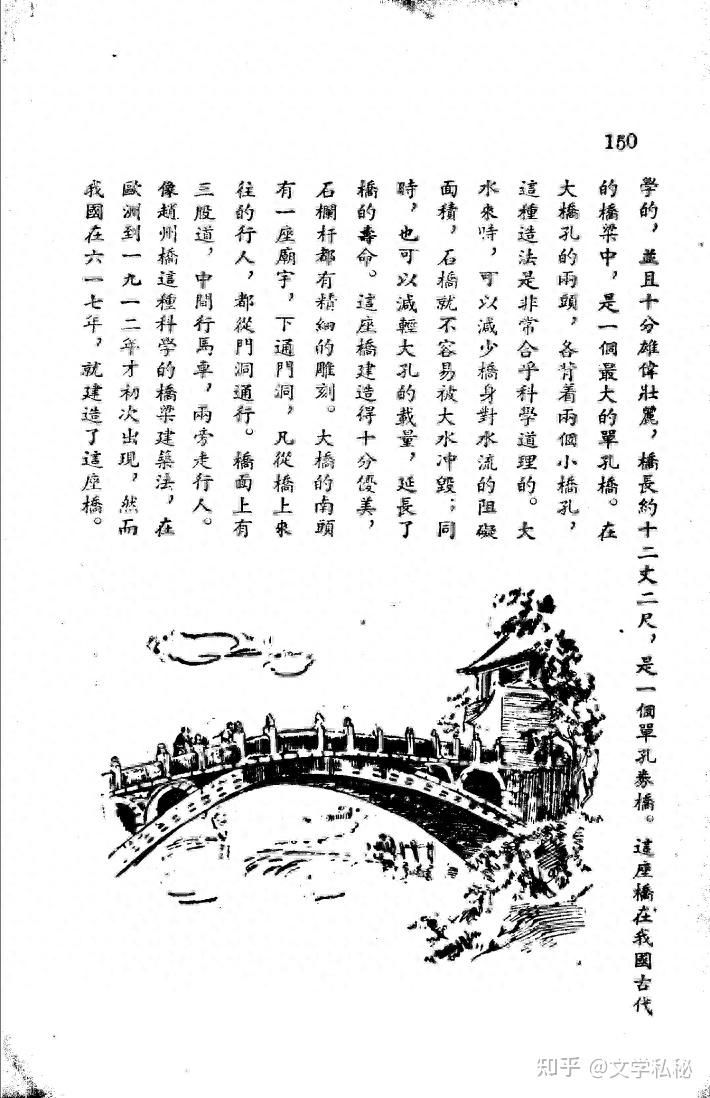 150
學的，並且十分雄偉壯麗，橋長約十二丈二尺，是一個單孔券橋。這座橋在我國古代
的橋梁中，是一個最大的單孔橋。在
大橋孔的兩頭，各背着兩個小橋孔，
這種造法是非常合乎科學道理的。大
水來時，可以減少橋身對水流的阻礙
面積，石橋就不容易被大水冲毀；同
時，也可以減輕大孔的載量，延長了
橋的壽命。這座橋建造得十分優美，
石欄杆都有精細的雕刻。大橋的南頭
有一座廟宇，下通門洞，凡從橋上來
往的行人，都從門洞通行。橋面上有
三股道，中間行馬車，兩旁走行人。
像趙州橋這種科學的橋梁建築法，在
歐洲到一九一二年才初次出現，然而
我國在六一七年，就建造了這座橋。
知乎 @文学私秘